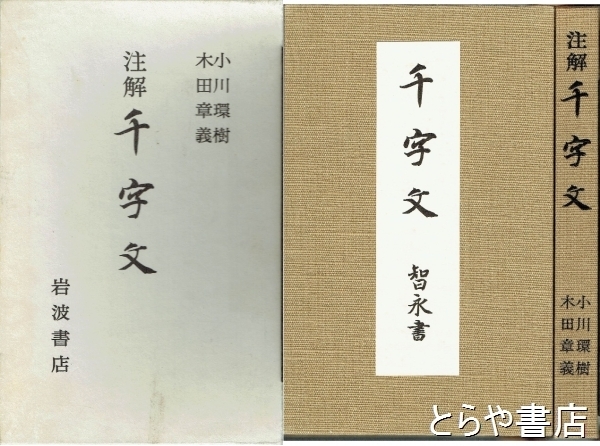 小川環樹
木田章義
注解 千字文
岩波書店
千字文
智永書
注解 千字文
小川環樹
木田章義
とらや書店